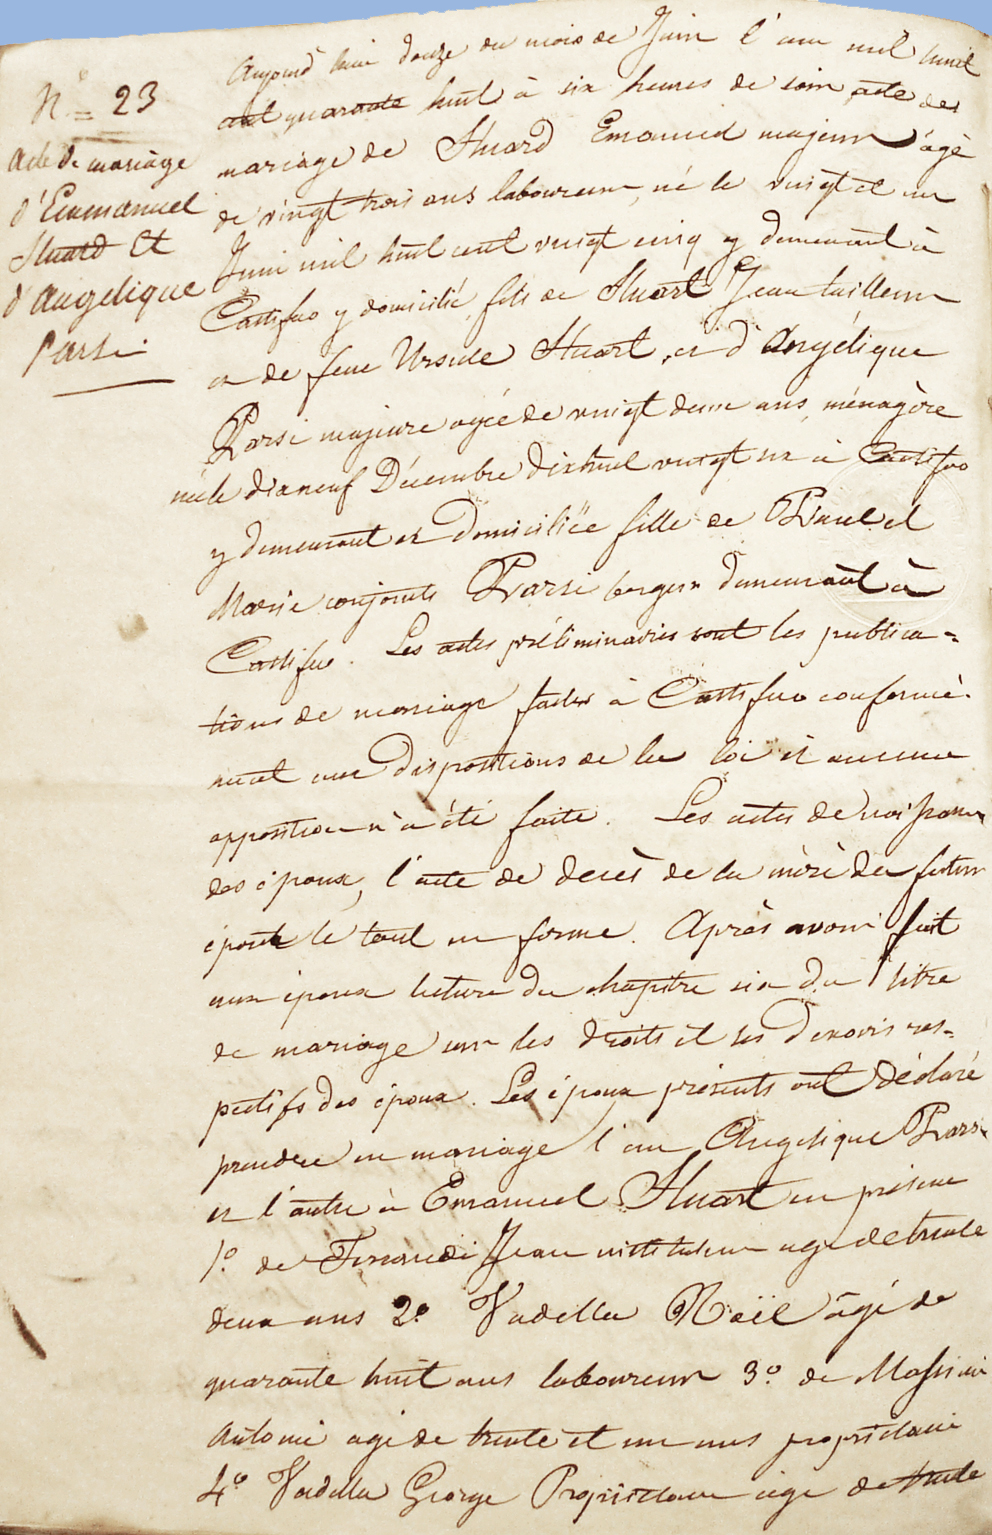 N° = 23
Acte de mariage
d'Emmanuel
Stuard Et
d'Angelique
Parsi
Aujourd'hui douze du mois de Juin l'an mil huit
cent quarante huit à six heures de soir, acte de
mariage de Stuard Emanuel majeur âgé
de vingt trois ans laboureur, né le vingt et un
Juin mil huit cent vingt cinq y demeurant à
Castifao y domicilié, fils de Stuart Jean tailleur
et de feue Ursule Stuart, et d'Angélique
Parsi majeure agée de vingt deux ans, ménagère
née le dixneuf Décembre dixhuit vingt six à Castifao
y demeurant et Domiciliée fille de Paul et
Marie conjoints Parsi berger demeurant à
Castifao. Les actes préliminaires sont les publica=
tions de mariage faites à Castifao conformé-
ment aux Dispositions de la loi et aucune
opposition n'a été faite. Les actes de naissance
des époux, l'acte de décès de la mère du futur
époux le tout en forme. Après avoir fait
aux époux lecture du chapitre six du titre
de mariage sur les droits et les Devoirs res=
pectifs des époux. Les époux présents ont Déclaré
prendre en mariage l'un Angelique Parsi
et l'autre à Emanuel Stuart en présence
1° de Jean instituteur age de trente
deux ans 2° Vadella Noël âgé de
quarante huit ans laboureur 3° de Massimi
Antoine agé de trente et un ans propriétaire
4° Vadella George Propriétaire age de trente